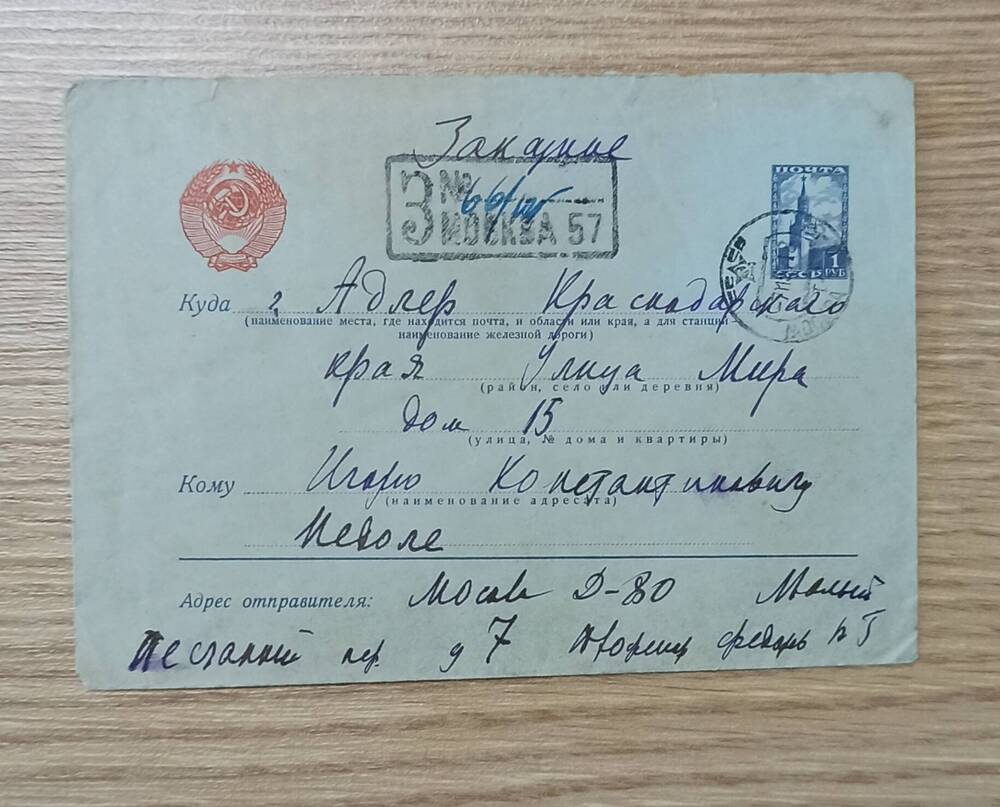 Заказное
З № 66/
МОСКВА 57
ПОЧТА
1 РУБ
СССР
Куда г. Адлер Краснодарского
(наименование места, где находится почта, и области или края, а для станций—
наименование железной дороги)
края Улица Мира
(район, село или деревня)
дом 15
(улица, № дома и квартиры)
Кому Игорю Константиновичу
(наименование адресата)
Недоле
Адрес отправителя: Москва Д-80 Малый
Песчаный пер. д 7